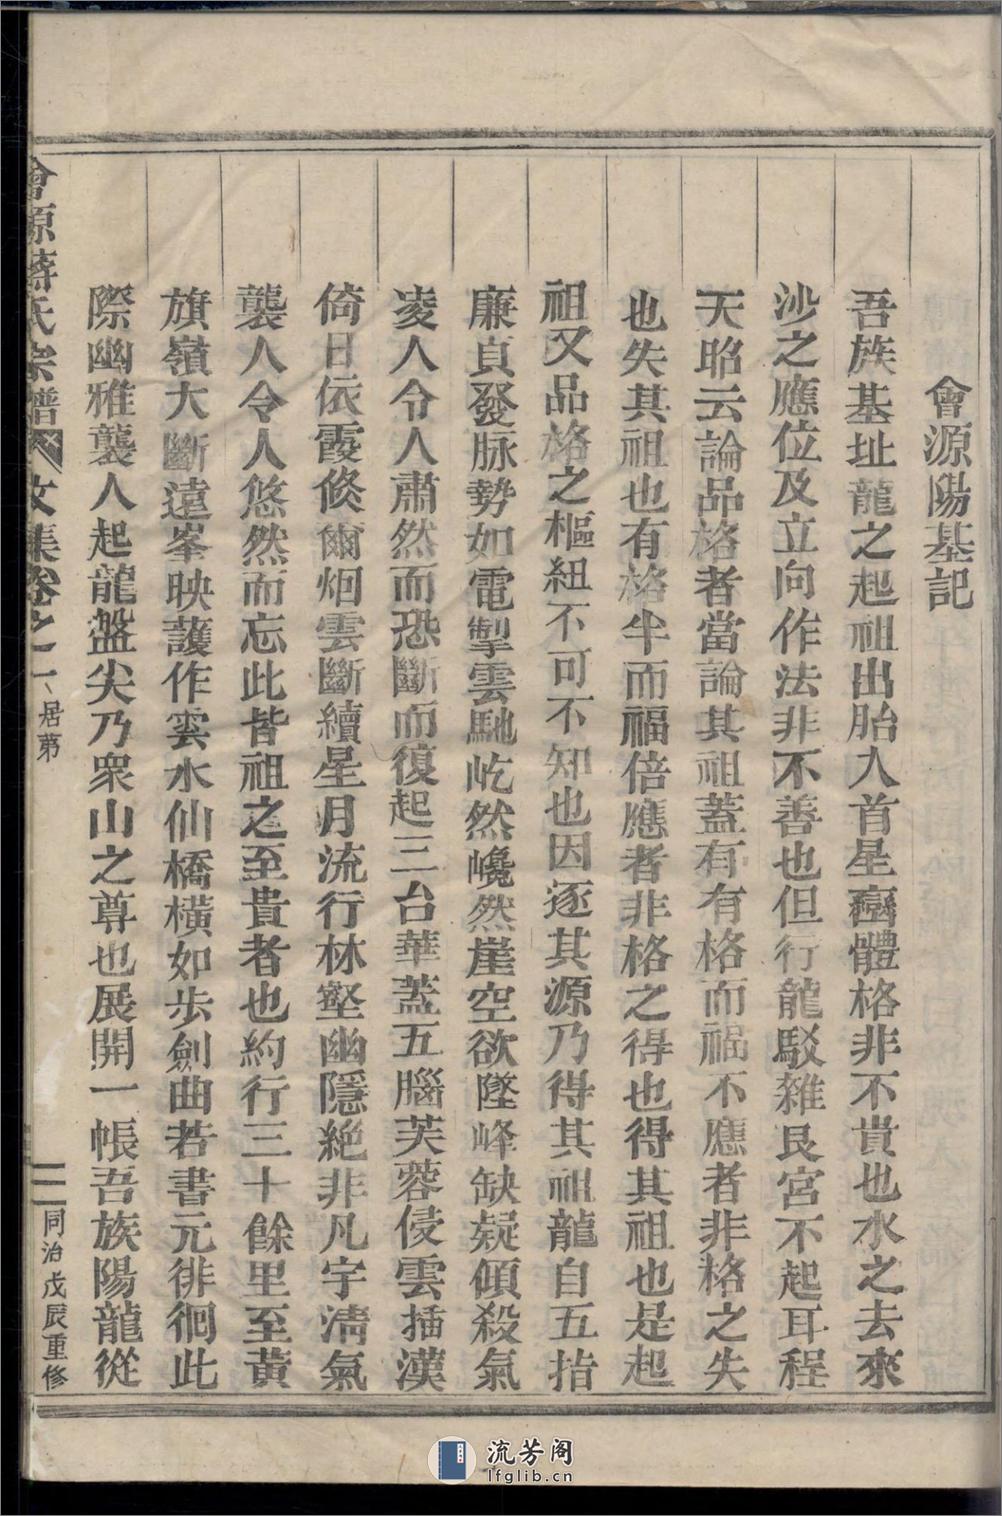 會源陽基記
吾族基址龍之起祖出胎入首星巒體格非不貴也水之去來
沙之應位及立向作法非不善也但行龍駁雜艮宮不起耳程
天昭云論品格者當論其祖蓋有有格而福不應者非格之失
也失其祖也有格半而福倍應者非格之得也得其祖也是起
祖又品格之樞紐不可不知也因逐其源乃得其祖龍自五指
廉貞發脉勢如電掣雲馳屹然巉然崖空欲墜峰缺疑傾殺氣
凌人令人肅然而恐斷而復起三台華蓋五腦芙蓉侵雲插漢
倚日依霞倐爾烟雲斷續星月流行林壑幽隱絶非凡宇清氣
襲人令人悠然而忘此皆祖之至貴者也約行三十餘里至黃
旗嶺大斷遠峯映護作雲水仙橋橫如步劍曲若書元徘徊此
際幽雅襲人起龍盤尖乃衆山之尊也展開一帳吾族陽龍從
會源蔣氏宗譜 文集卷之一 居第 二 同治戊辰重修
流芳阁
lfglib.cn